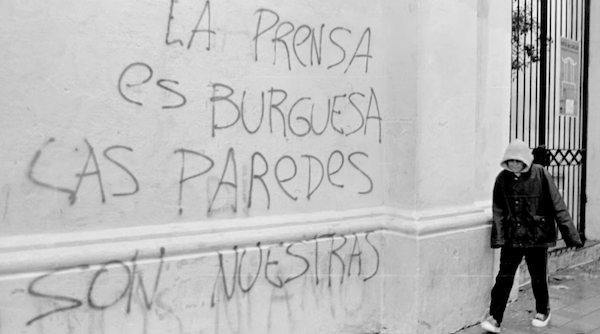 LA PRENSA
es BURGUESA
LAS PAReDes
SON NUESTRAS